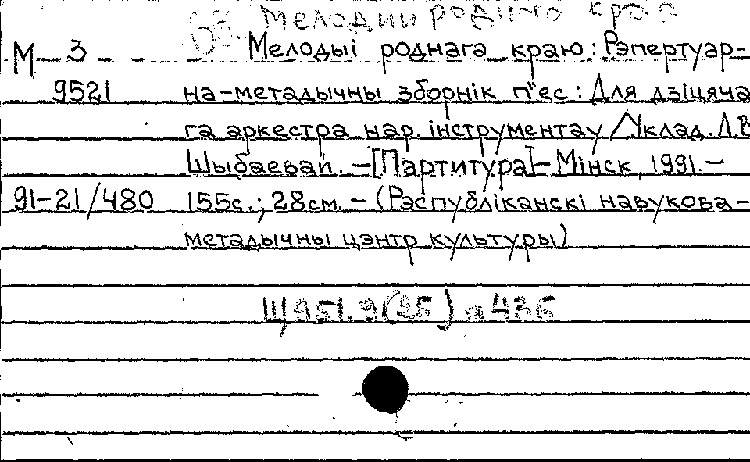 Мелодии родного края
М 3 Мелодыі роднага краю: Рэпертуар-
9521 на-метадычны зборнік п'ес: Для дзіцяча
га аркестра нар. інструментаў / Уклад. Л.В
Шыбаевай. – [Партитура] – Мінск, 1991. –
91-21/480 155с.; 28см. – (Рэспубліканскі навукова-
метадычны цэнтр культуры)
Щ951.9(25) я 436